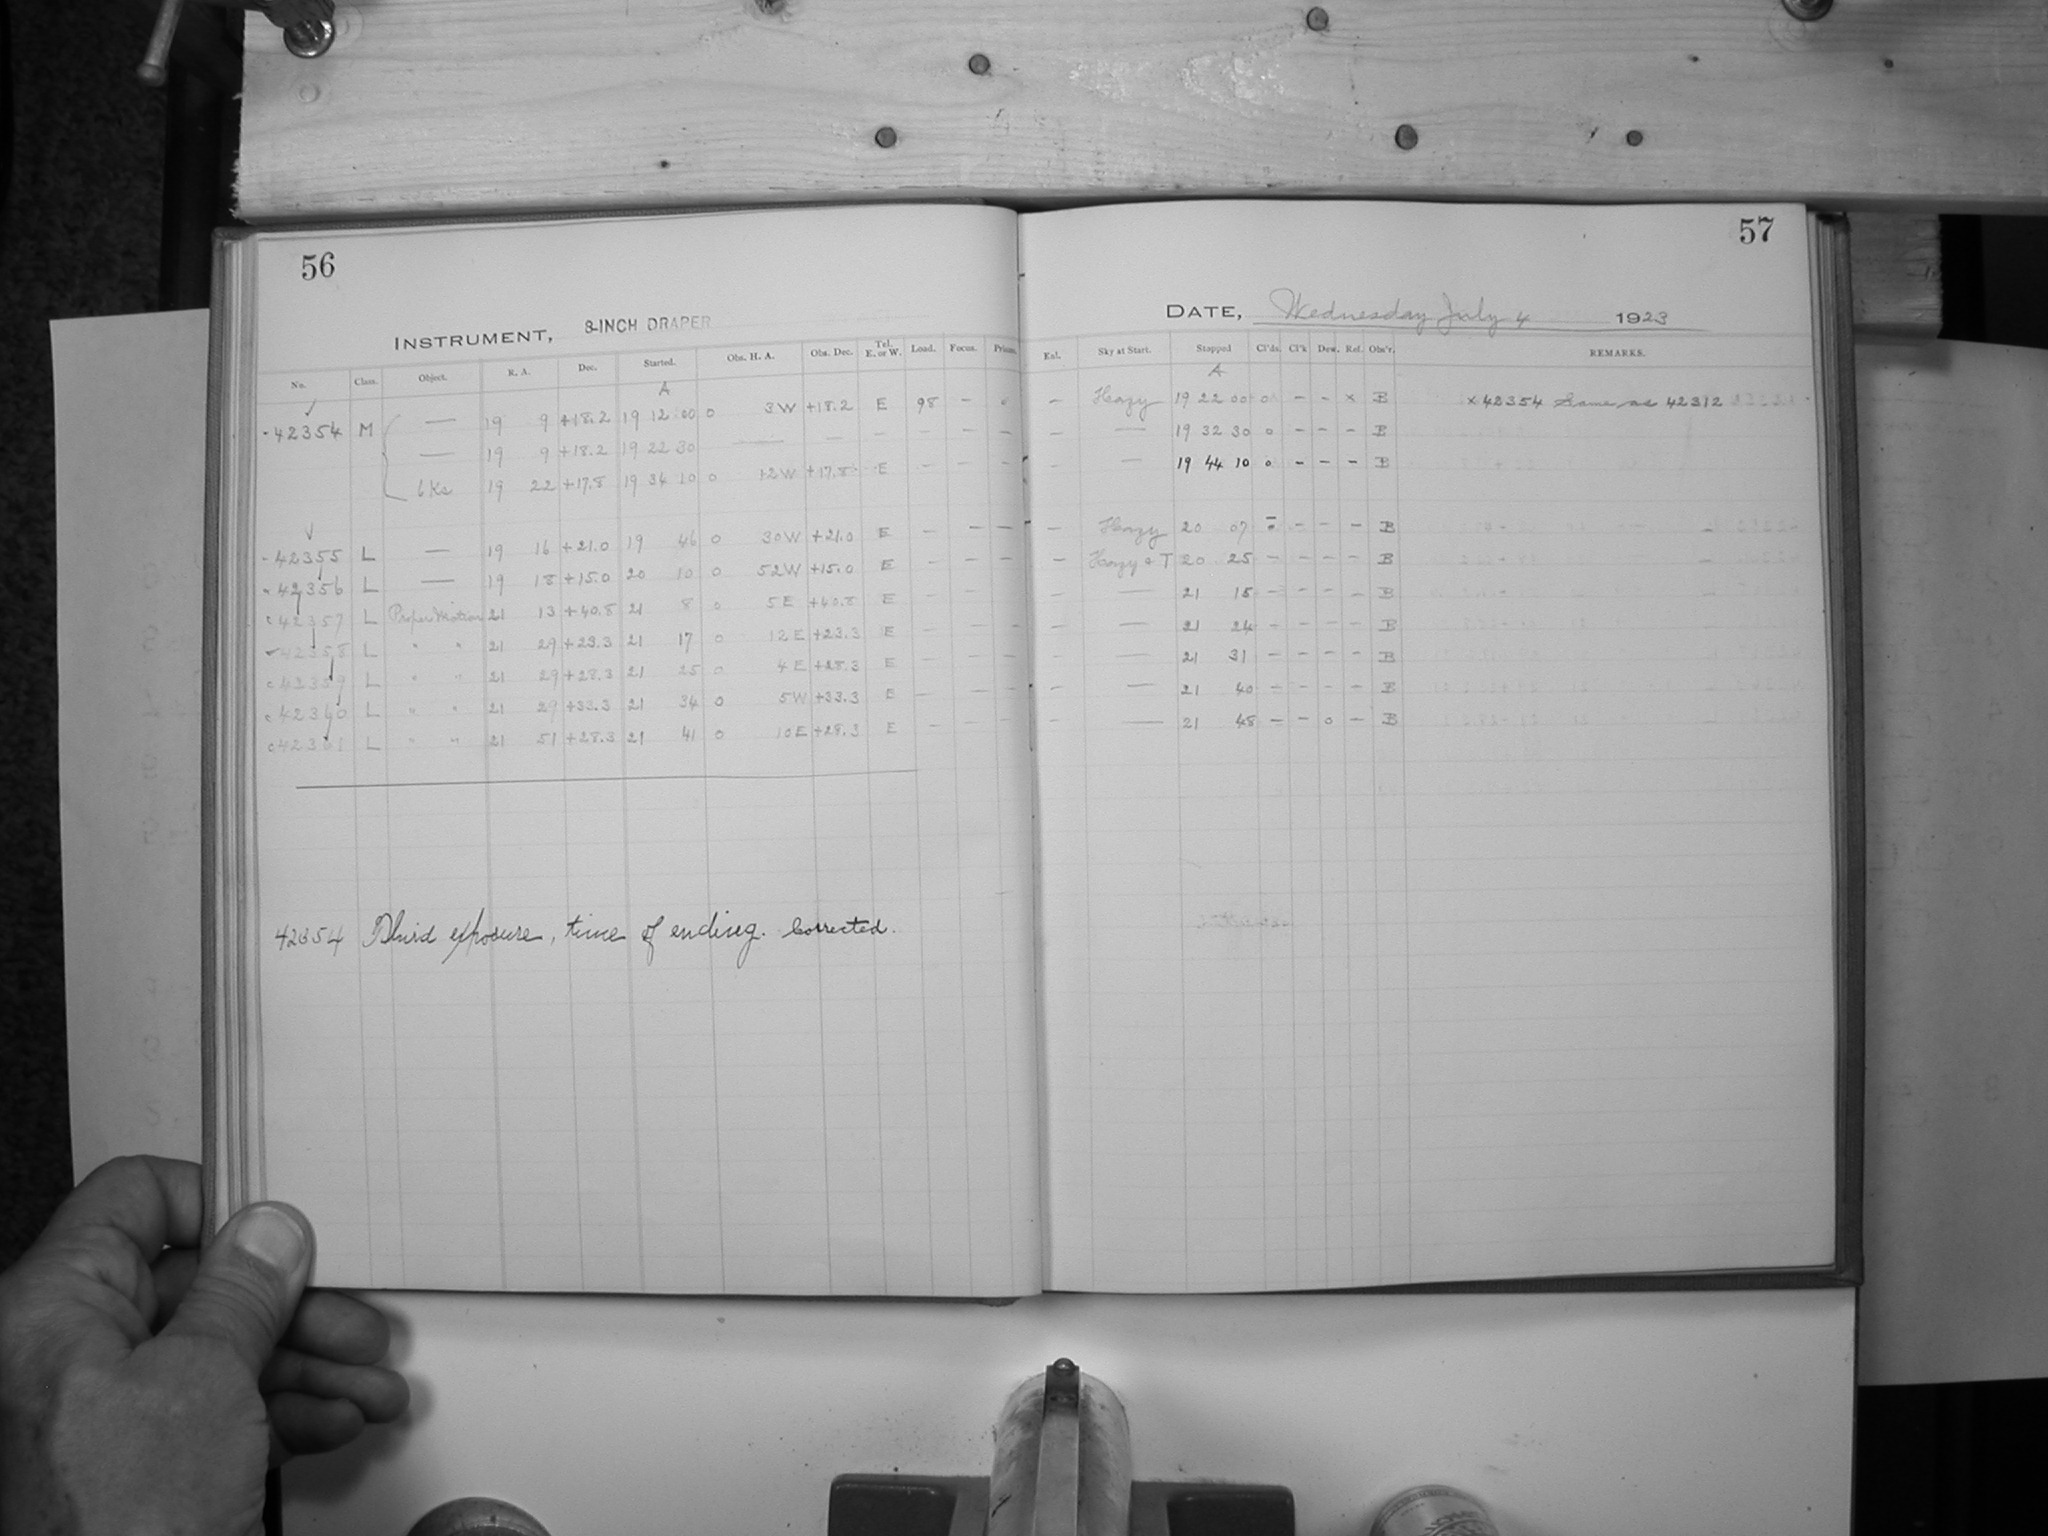 56
INSTRUMENT, 8-INCH DRAPER
No. Class. Object. R. A. Dec. Started. Obs. H. A. Obs. Dec. Tel. E. or W. Load. Focus. Prism.
A
42354 M — 19 9 +18.2 19 12 00 0 3W +18.2 E 98 -
— 19 9 +18.2 19 22 30 — — — — — —
19 22 +17.8 19 34 10 0 12W +17.8 E — — —
42355 L — 19 16 +21.0 19 46 0 30W +21.0 E — — —
42356 L — 19 18 +15.0 20 10 0 52W +15.0 E — — —
42357 L Proper Motion 21 13 +40.8 21 8 0 5E +40.8 E — — —
42358 L " " 21 29 +23.3 21 17 0 12E +23.3 E — — —
42359 L " " 21 29 +28.3 21 25 0 4E +28.3 E — — —
42360 L " " 21 29 +33.3 21 34 0 5W +33.3 E — — —
42361 L " " 21 51 +28.3 21 41 0 10E +28.3 E — — —
42354 Third exposure, time of ending. Corrected.
57
DATE, Wednesday July 4 1923
Exl. Sky at Start. Stopped Cl'ds. Cl'k Dew. Ref. Obs'r. REMARKS.
A
— Hazy 19 22 00 0 — — x B x 42354 Same as 42312
— — 19 32 30 0 — — — B
— — 19 44 10 0 — — — B
— Hazy 20 07 — — — B
— Hazy & T 20 25 — — — — B
— — 21 15 — — — — B
— — 21 24 — — — — B
— — 21 31 — — — — B
— — 21 40 — — — — B
— — 21 48 — — 0 — B